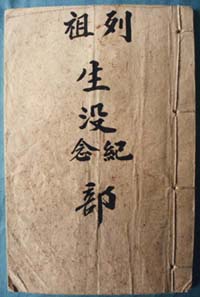 列祖
生
没
紀念
部